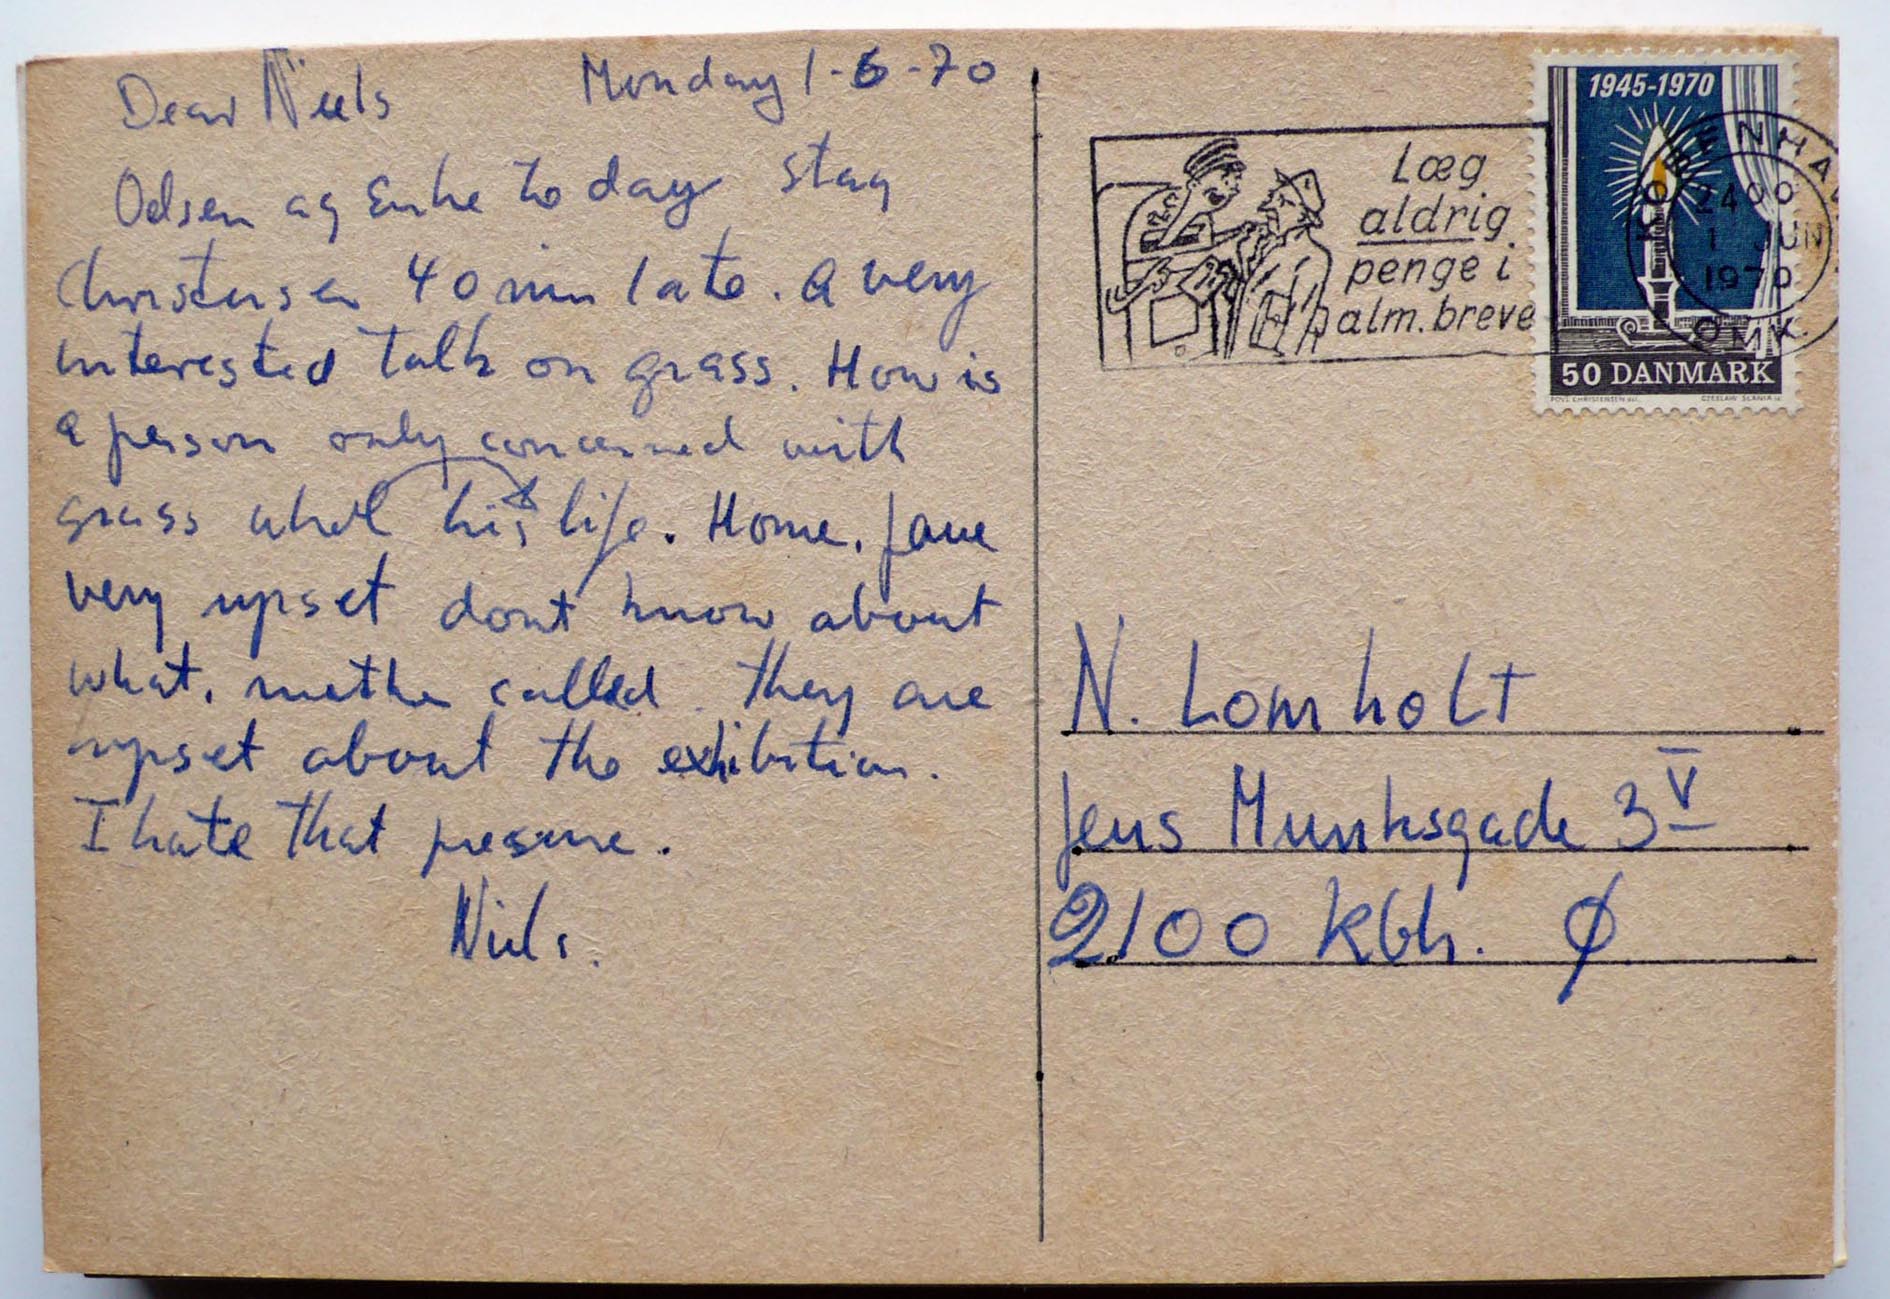 Dear Niels
Monday 1-6-70
Odsen ag Enke to day stag
Christensen 40 min late. A very
interested talk on grass. How is
a person only concerned with
grass whol his life. Home. Jane
very upset dont know about
what, mother called. They are
upset about the exhibition.
I hate that presure.
Niels.
Læg
aldrig
penge i
alm. breve
1945-1970
KØBENHAVN
2400
1 JUN
1970
OMK.
50 DANMARK
POVL CHRISTENSEN del.
CZESLAW SLANIA sc
N. Lomholt
Jens Munksgade 3 V
2100 Kbh. Ø